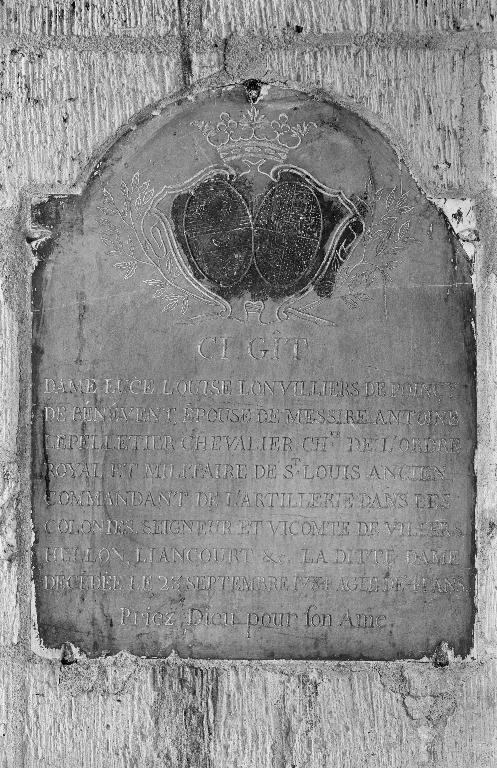 CI GÎT
DAME LUCE LOUISE LONVILLIERS DE POINCY
DE BÉNOVENT, ÉPOUSE DE MESSIRE ANTOINE
LEPELLETIER CHEVALIER CH.ER DE L'ORDRE
ROYAL ET MILITAIRE DE S.T LOUIS ANCIEN
COMMANDANT DE L'ARTILLERIE DANS LES
COLONIES, SEIGNEUR ET VICOMTE DE VILLERS
HELLON, LIANCOURT &c. LA DITTE DAME
DÉCÉDÉE LE SEPTEMBRE AGÉE DE ANS.
Priez Dieu pour son Ame.